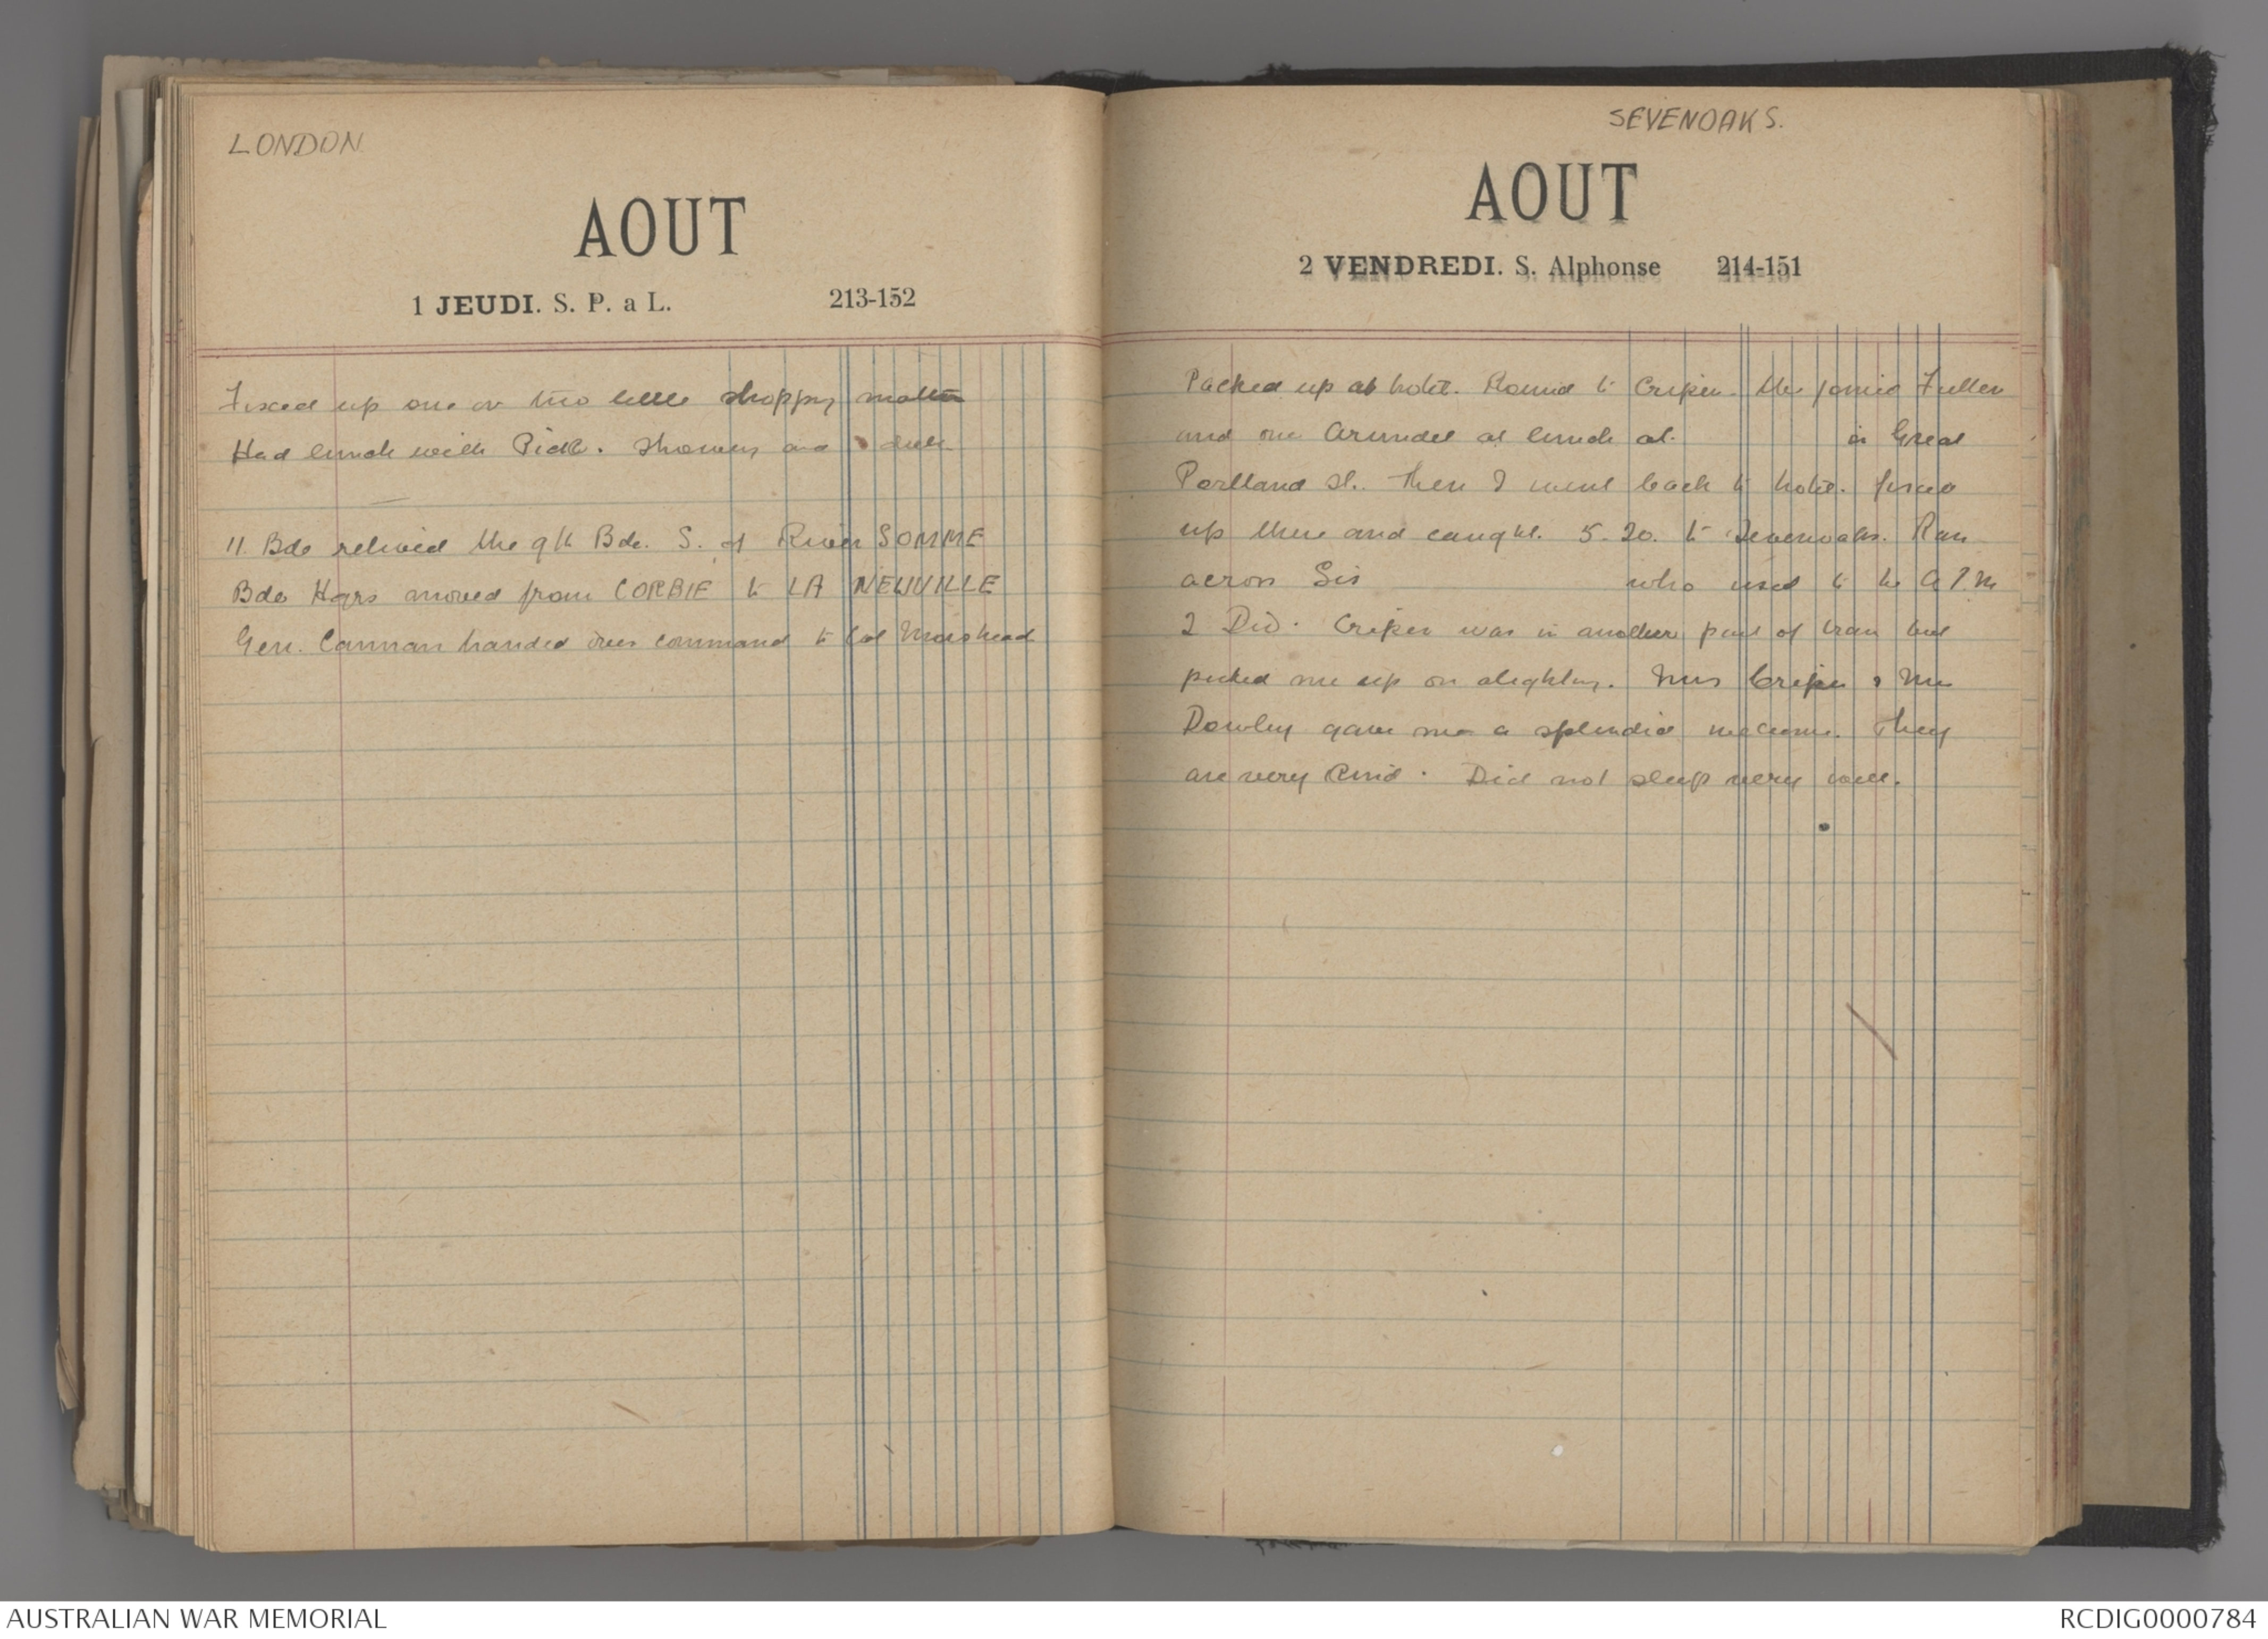 LONDON
AOUT
1 JEUDI. S. P. a L. 213-152
Fixed up one or two little shopping matters
Had lunch with Dick. Showery and dull
11 Bde relieved the 9th Bde. S. of River SOMME
Bde Hqrs moved from CORBIE to LA NEUVILLE
Gen. Cannan handed over command to Col Morshead
SEVENOAKS.
AOUT
2 VENDREDI. S. Alphonse 214-151
Packed up at hotel. Round to We joined Fuller
and one Arundel at lunch at in Great
Portland St. Then I went back to hotel. fixed
up there and caught 5.20. to Sevenoaks. Ran
across who used to be A.P.M
2 Div. was in another part of train but
picked me up on alighting. Mrs & Mrs
gave me a splendid welcome. They
are very kind. Did not sleep very well.
AUSTRALIAN WAR MEMORIAL
RCDIG0000784